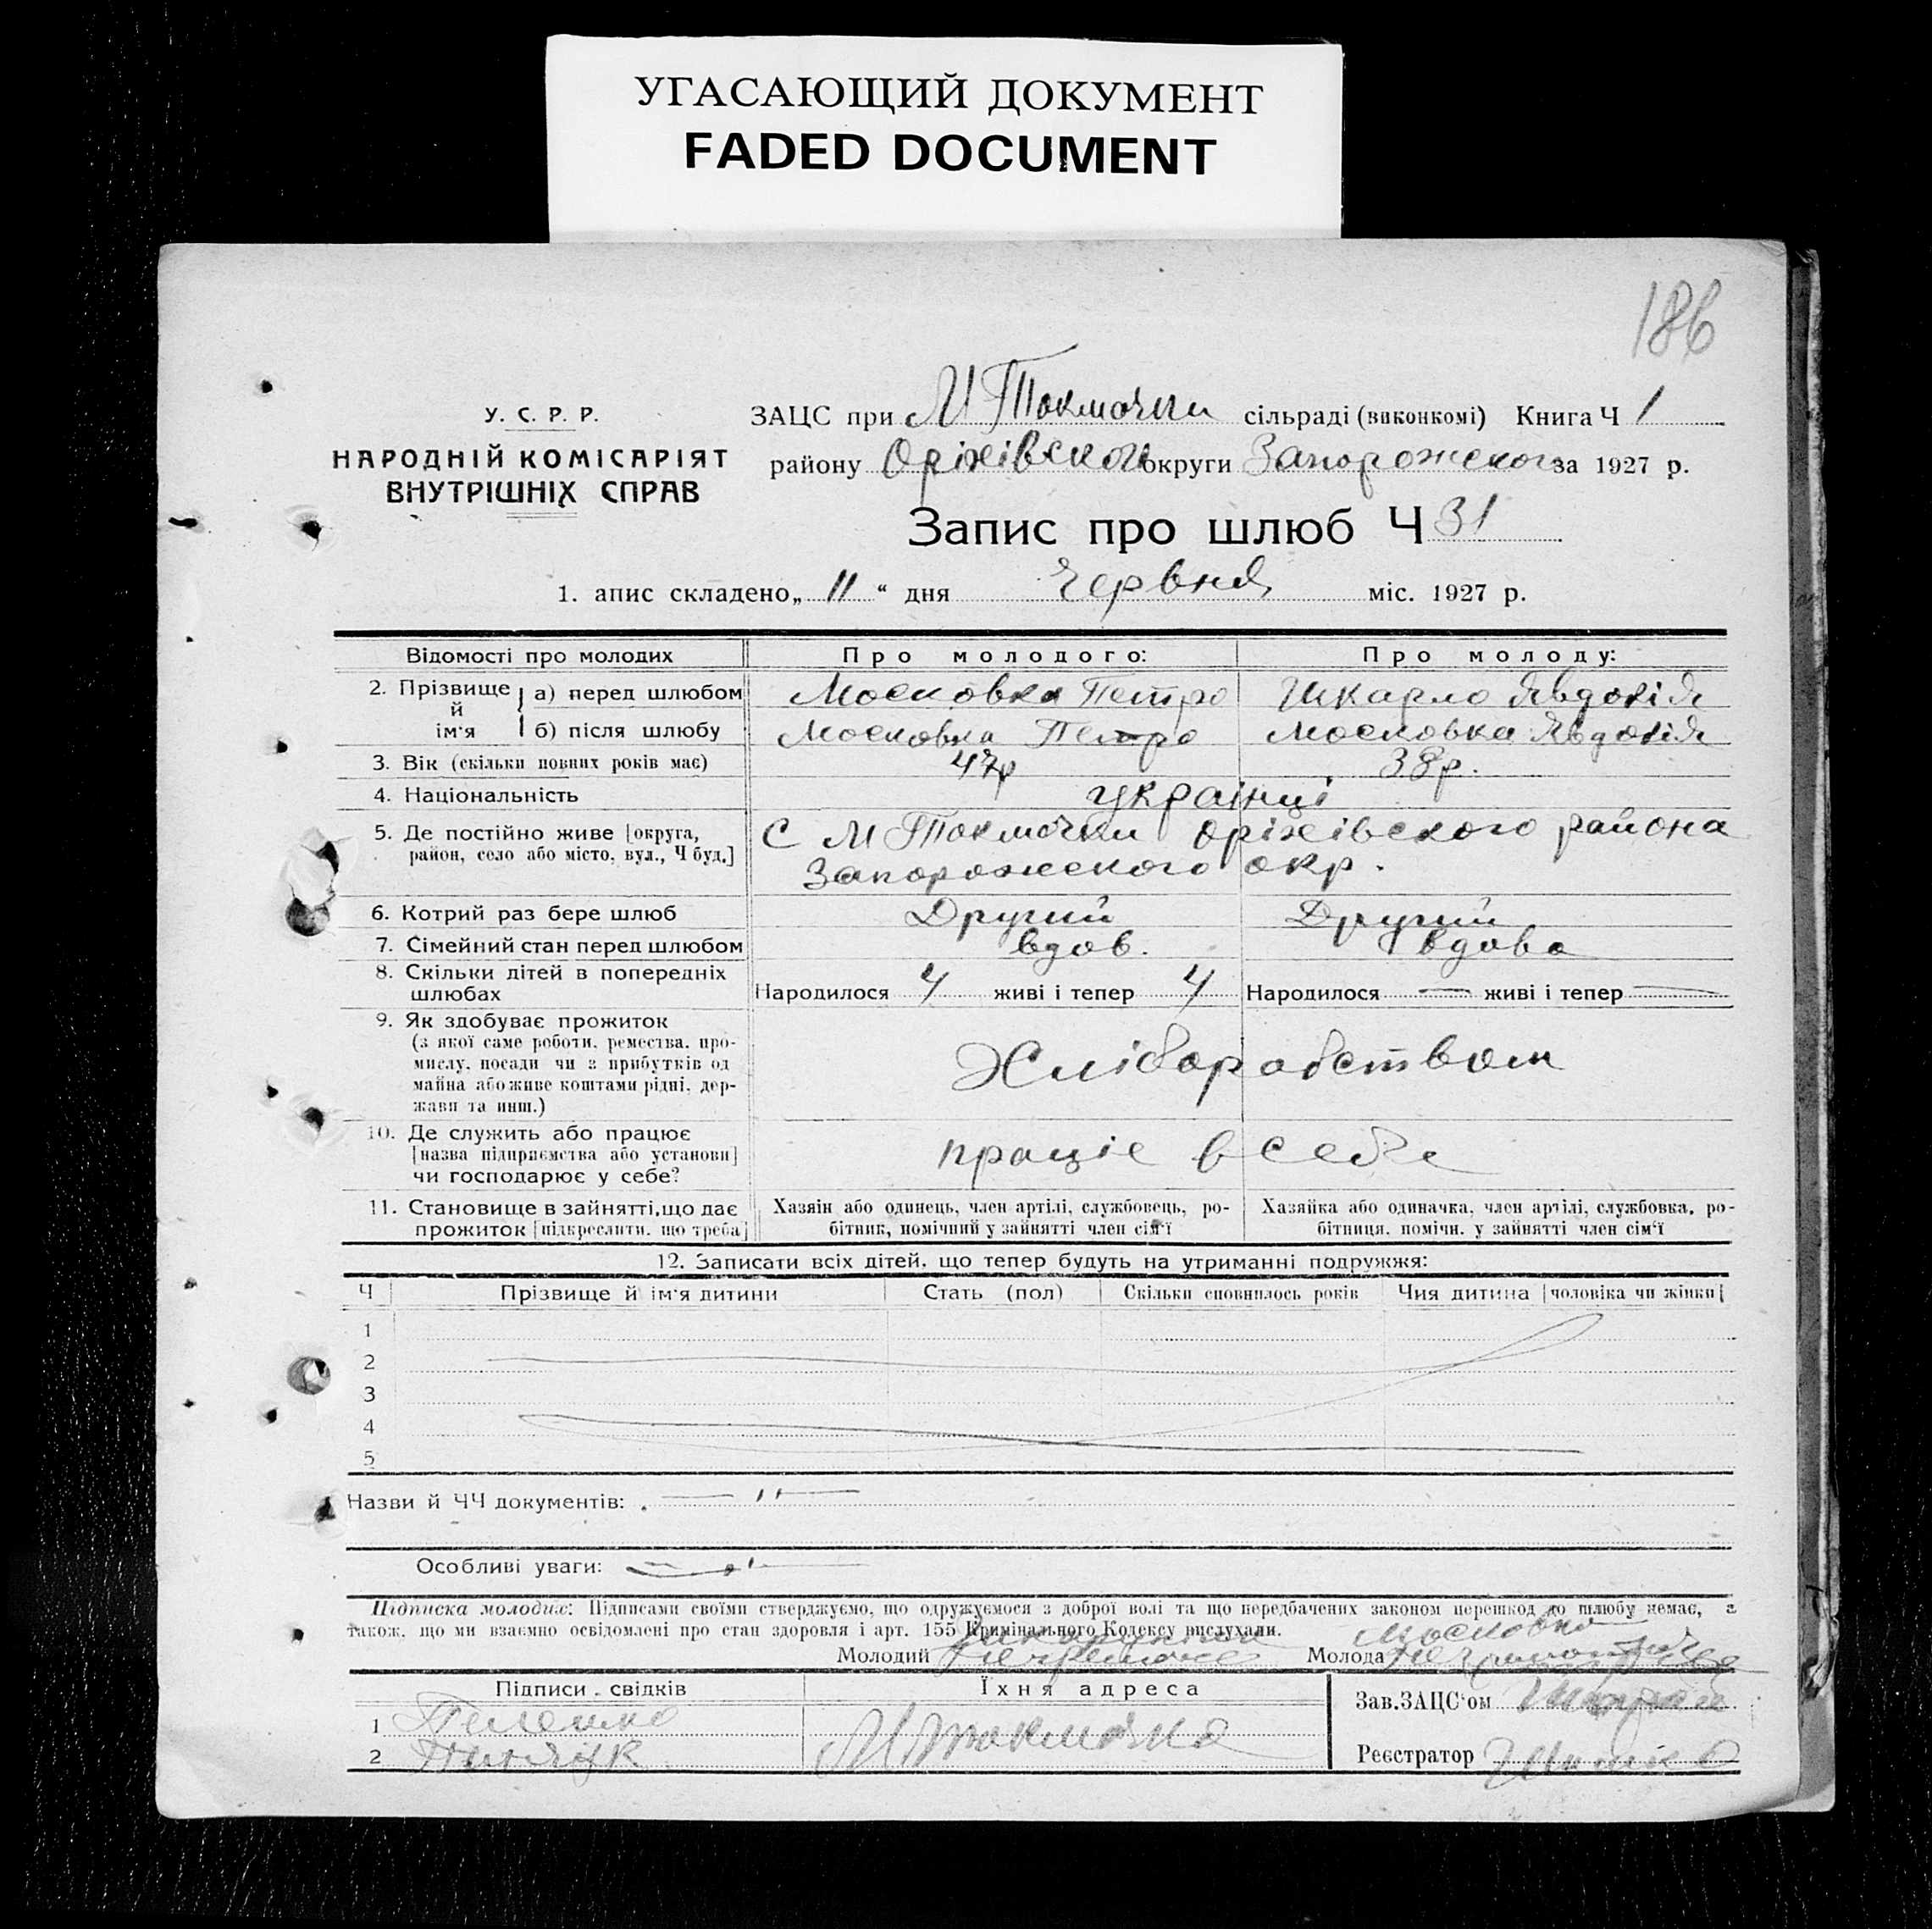 УГАСАЮЩИЙ ДОКУМЕНТ
FADED DOCUMENT
186
У. С. Р. Р.
НАРОДНІЙ КОМІСАРІЯТ
ВНУТРІШНІХ СПРАВ
ЗАЦС при М Токмачки сільраді (виконкомі) Книга Ч 1
району Оріхівского округи Запорожского за 1927 р.
Запис про шлюб Ч 31
1. апис складено „ 11 “ дня Червня міс. 1927 р.
Відомості про молодих Про молодого: Про молоду:
2. Прізвище й ім'я а) перед шлюбом Московка Петро Шкарло Явдохія
б) після шлюбу Московка Петро Московка Явдохія
3. Вік (скільки повних років має) 47р 38р.
4. Національність українці
5. Де постійно живе [округа, С М Токмачки Оріхівского района
район, село або місто, вул., Ч буд.] Запорожского окр.
6. Котрий раз бере шлюб Другий Другий
7. Сімейний стан перед шлюбом вдов. вдова
8. Скільки дітей в попередніх
шлюбах Народилося 4 живі і тепер 4 Народилося — живі і тепер —
9. Як здобуває прожиток
(з якої саме роботи, ремества, про-
мислу, посади чи з прибутків од
майна або живе коштами рідні, дер-
жави та инш.)
Хліборобством
10. Де служить або працює
[назва підприємства або установи]
чи господарює у себе?
праціє в себе
11. Становище в зайнятті, що дає Хазяін або одинець, член артілі, службовець, ро- Хазяйка або одиначка, член артілі, службовка, ро-
прожиток [підкреслити, що треба] бітник, помічний у зайнятті член сім'ї бітниця, помічн. у зайнятті член сім'ї
12. Записати всіх дітей, що тепер будуть на утриманні подружжя:
Ч Прізвище й ім'я дитини Стать (пол) Скільки сповнилось років Чия дитина [чоловіка чи жінки]
1
2
3
4
5
Назви й ЧЧ документів: — " —
Особливі уваги: — " —
Підписка молодих: Підписами своїми стверджуємо, що одружуємося з доброї волі та що передбачених законом перешкод до шлюбу немає, а
також, що ми взаємно освідомлені про стан здоровля і арт. 155 Кримінального Кодексу вислухали.
Московка
Молодий Молода
Підписи свідків Їхня адреса Зав. ЗАЦС'ом
1
М Токмачка
2 Реєстратор